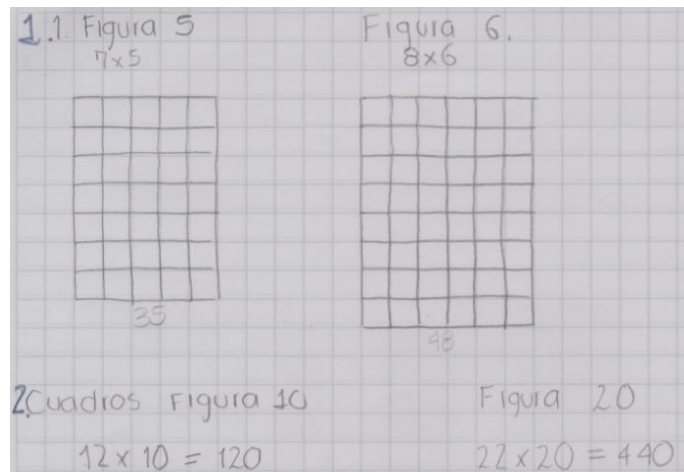 1.1. Figura 5
7x5
Figura 6.
8x6
35
48
2.Cuadros Figura 10
12 x 10 = 120
Figura 20
22 x 20 = 440